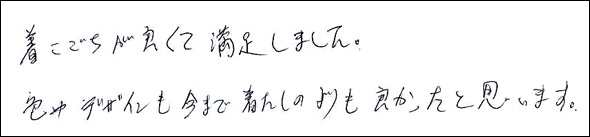 着ごこちが良くて満足しました。
色やデザインも今まで着たものよりも良かったと思います。